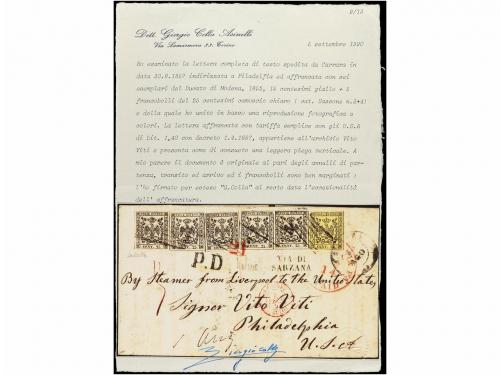 2/13
Dott. Giorgio Colla Asinelli
Via Lamarmora 22. Torino
6 settembre 1990
Ho esaminato la lettera completa di testo spedita da Carrara in
data 20.8.1857 indirizzata a Filadelfia ed affrancata con sei
esemplari del Ducato di Modena, 1852, 15 centesimi giallo + 5
francobolli del 25 centesimi camoscio chiaro ( cat. Sassone n.3+4)
e della quale ho unito in basso una riproduzione fotografica a
colori. La lettera affrancata con tariffa semplice con gli U.S.A
di Lit. 1,40 con decreto 1.6.1857, appartiene all'archivio Vito
Viti e presenta come di consueto una leggera piega verticale. A
mio parere il documento è originale al pari degli annulli di par-
tenza, transito ed arrivo ed i francobolli sono ben marginati :
l'ho firmato per esteso "G.Colla" al recto data l'eccezionalità
dell' affrancatura.
P.D
VIA DI
SARZANA
By Steamer from Liverpool to the United States,
Signor Vito Viti
Philadelphia
U.S.A